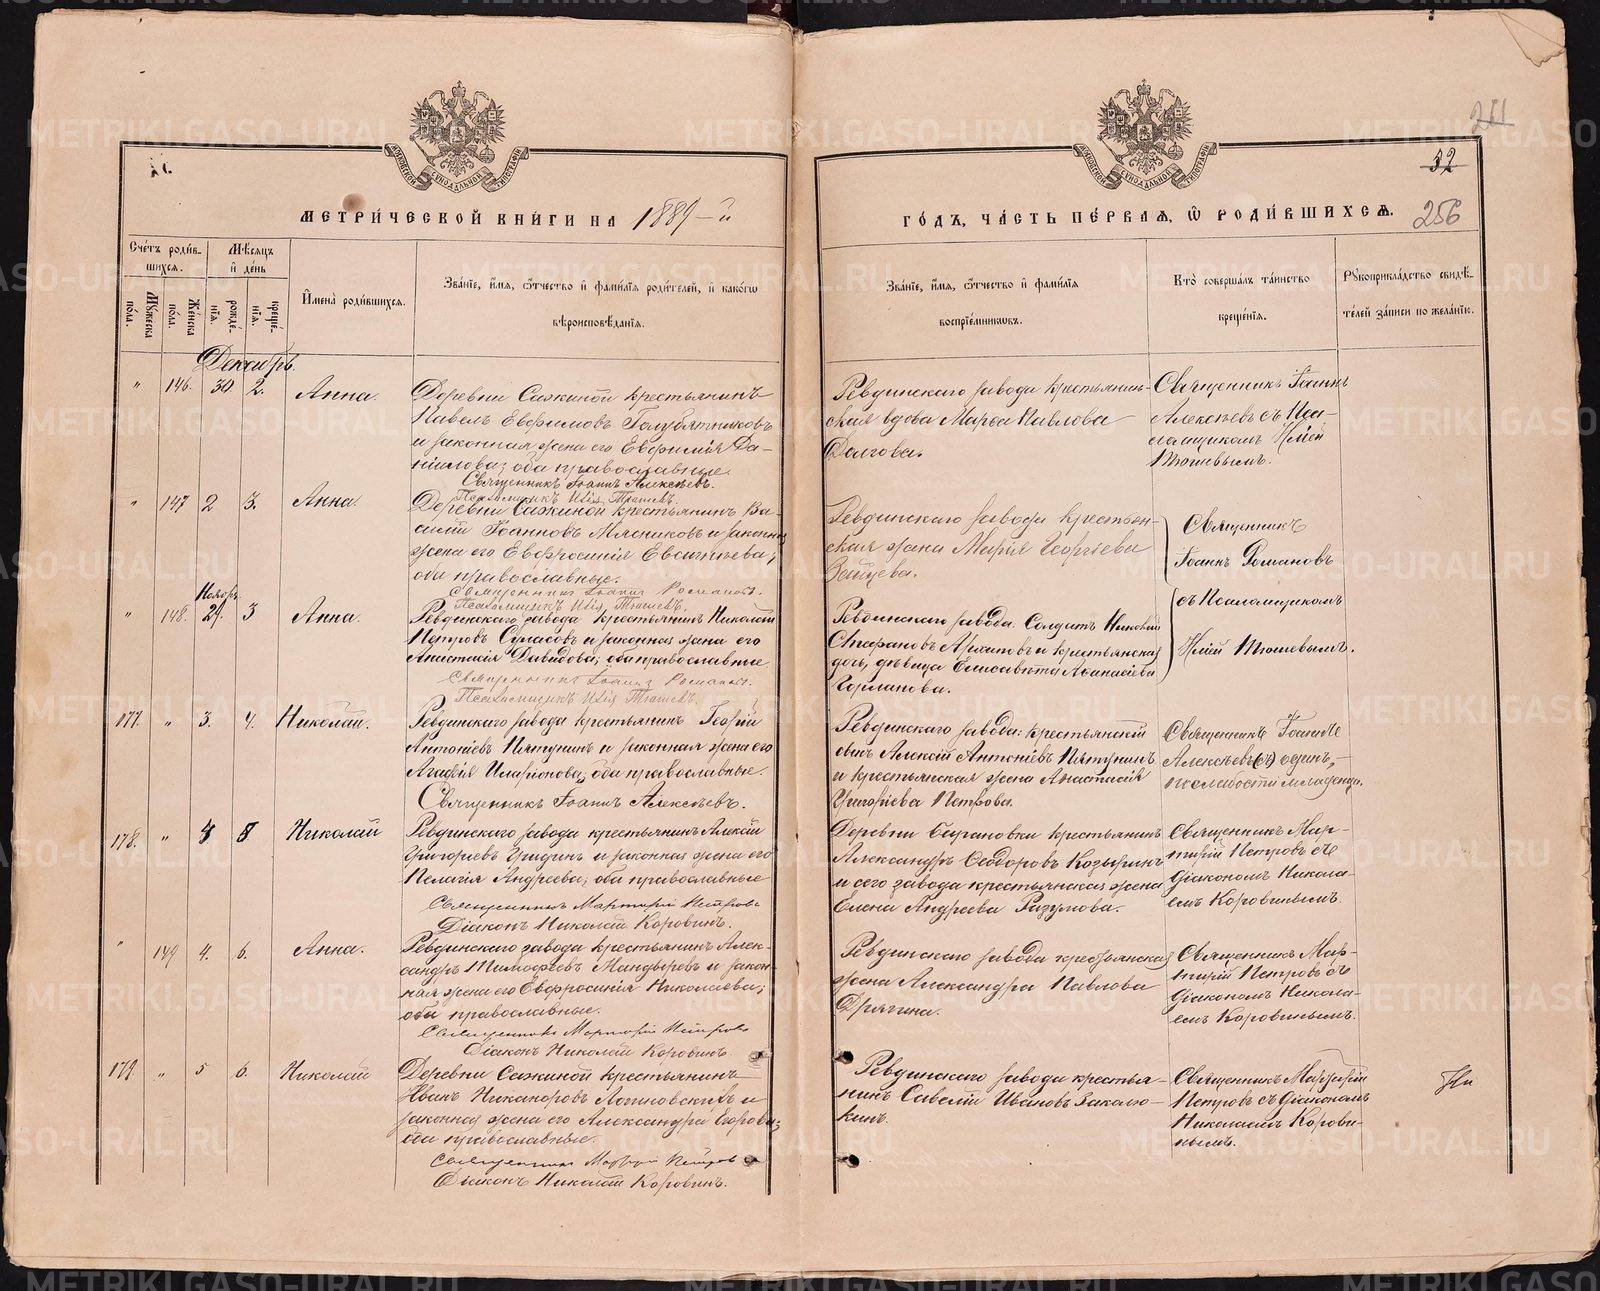 МЕТРИ́ЧЕСКОЙ КНИ́ГИ НА 1889-й
ГО́ДЪ, ЧА́СТЬ ПЕ́РВАЯ, Ѡ РОДИ́ВШИХСЯ.
32
256
Сче́тъ роди́в-
шихся.
Мѣ́сяцъ
и҆ де́нь
Мꙋ́жеска
по́ла.
Же́нска
по́ла.
рожде́-
нїѧ.
креще́-
нїѧ.
И҆мена̀ роди́вшихся.
Зва́нїе, и҆́мя, ѻ҆́тчество и҆ фами́лїя роди́телей, и҆ како́гѡ
вѣроисповѣ́данїя.
Зва́нїе, и҆́мя, ѻ҆́тчество и҆ фами́лїя
воспрїе́мниковъ.
Кто̀ соверша́лъ та́инство
креще́нїя.
Рꙋкоприкла́дство свидѣ́-
телей за́писи по жела́нїю.
Декабрь.
" 146. 30 2. Анна.
Деревни Сажиной крестьянинъ
Павелъ Евфимовъ Голубятниковъ
и законная жена его Евфимія Да-
ніилова; оба православные.
Священникъ Іоаннъ Алексѣевъ.
Псаломщикъ Илія Тюшевъ.
Ревдинскаго завода крестьян-
ская вдова Марѳа Павлова
Долгова.
Священникъ Іоаннъ
Алексѣевъ съ Пса-
ломщикомъ Иліей
Тюшевымъ.
" 147 2 3. Анна.
Деревни Сажиной крестьянинъ Ва-
силій Іоанновъ Мясниковъ и законная
жена его Евфросинія Евсигніева;
оба православные.
Священникъ Іоаннъ Романовъ.
Псаломщикъ Илія Тюшевъ.
Ревдинскаго завода крестьян-
ская жена Марія Георгіева
Зайцева.
Священникъ
Іоаннъ Романовъ
съ Псаломщикомъ
Иліей Тюшевымъ.
Ноябрь
" 148. 29. 3 Анна.
Ревдинскаго завода крестьянинъ Николай
Петровъ и законная жена его
Анастасія Давидова; оба православные
Священникъ Іоаннъ Романовъ.
Псаломщикъ Илія Тюшевъ.
Ревдинскаго завода: Солдатъ
Стефановъ и крестьянская
дочь, дѣвица Елисавета Аѳанасіева
Горланова.
177. " 3. 4. Николай.
Ревдинскаго завода крестьянинъ Георгій
Антоніевъ Пятунинъ и законная жена его
Агафія Иларіонова; оба православные.
Священникъ Іоаннъ Алексѣевъ.
Ревдинскаго завода: крестьянскій
сынъ Алексій Антоніевъ Пятунинъ
и крестьянская жена Анастасія
Григоріева Петрова.
Священникъ Іоаннъ
Алексѣевъ одинъ, –
по слабости младенца.
178. " 4 5 Николай
Ревдинскаго завода крестьянинъ Алексій
Григорьевъ Гридинъ и законная жена его
Пелагія Андреева; оба православные
Священникъ Мартирій Петровъ
Діаконъ Николай Коровинъ.
Деревни крестьянинъ
Александръ Ѳеодоровъ Козыринъ
и сего завода крестьянская жена
Елена Андреева Разумова.
Священникъ Мар-
тирій Петровъ съ
Діакономъ Никола-
емъ Коровинымъ.
" 149 4. 6. Анна.
Ревдинскаго завода крестьянинъ Алек-
сандръ Тимофеевъ Мандыревъ и закон-
ная жена его Евфросинія Николаева;
оба православные.
Священникъ Мартирій Петровъ
Діаконъ Николай Коровинъ.
Ревдинскаго завода крестьянская
жена Александра Павлова
Дрягина.
Священникъ Мар-
тирій Петровъ съ
Діакономъ Никола-
емъ Коровинымъ.
179 " 5 6. Николай
Деревни Сажиной крестьянинъ
Иванъ Никаноровъ Логиновскихъ и
законная жена его Александра Егорова;
оба православные.
Священникъ Мартирій Петровъ
Діаконъ Николай Коровинъ.
Ревдинскаго завода крестья-
нинъ Савелій Ивановъ Закалю-
кинъ.
Священникъ Мартирій
Петровъ съ Діакономъ
Николаемъ Корови-
нымъ.
METRIKI.GASO-URAL.RU